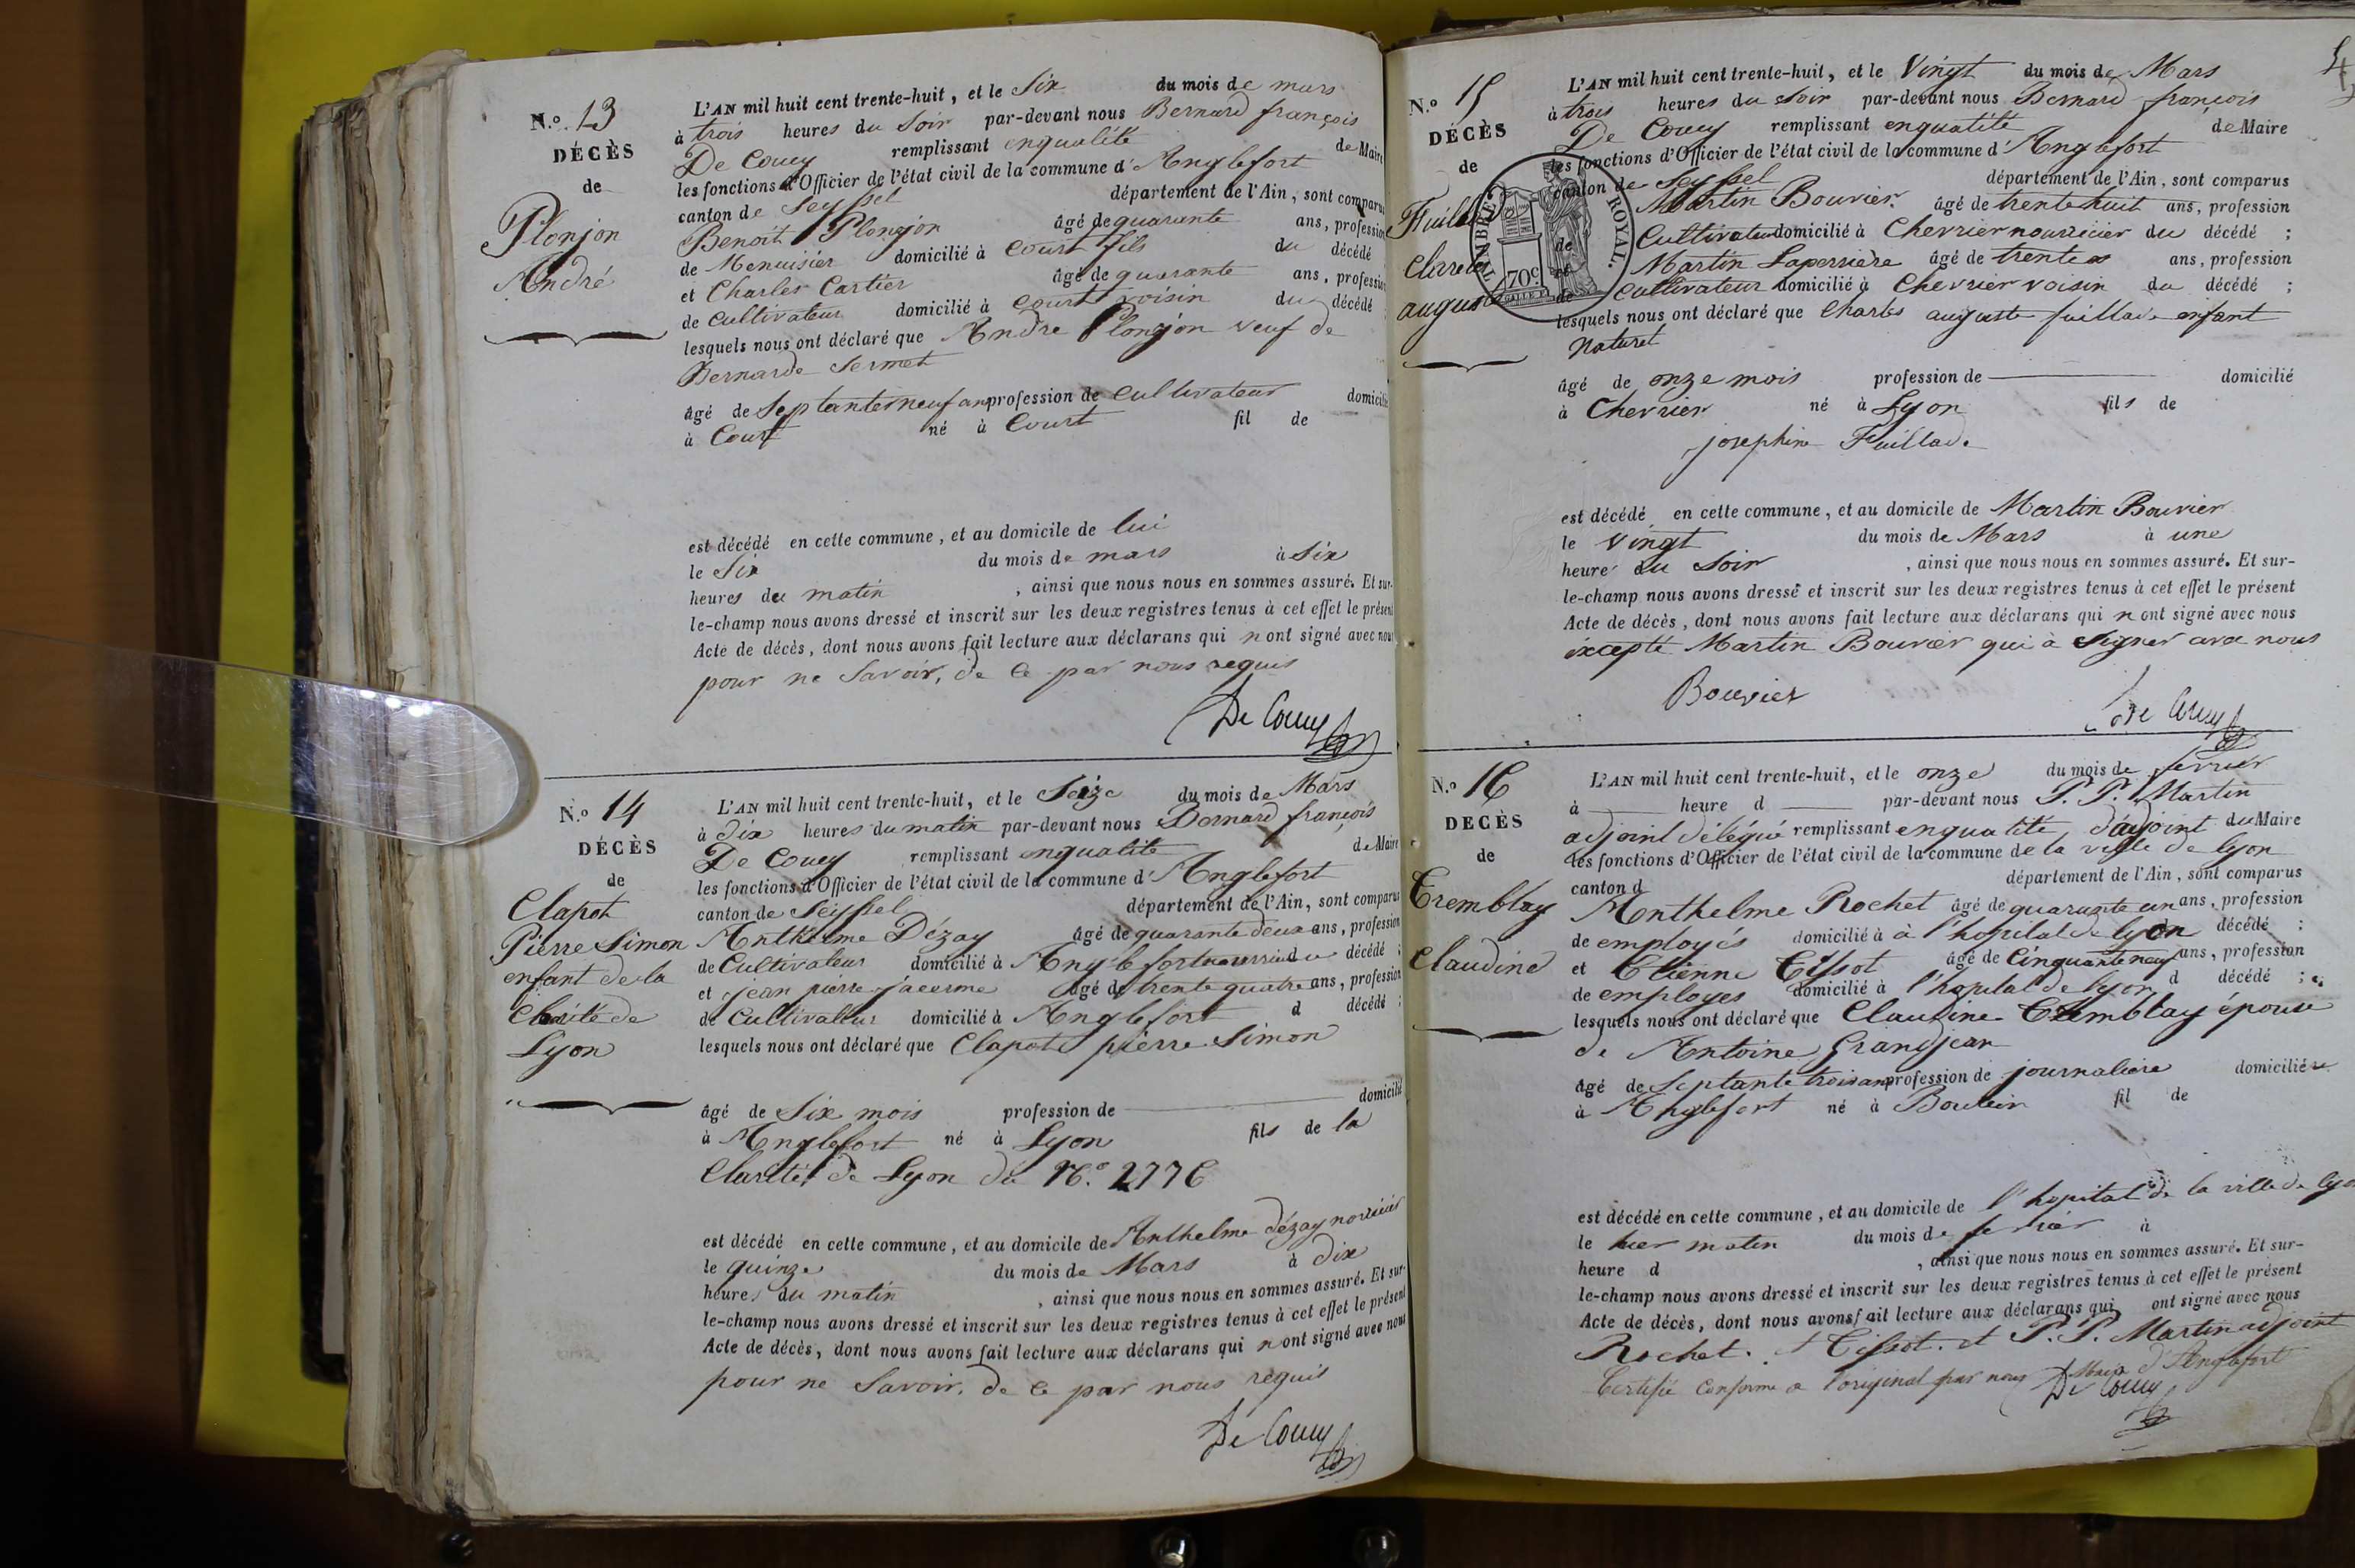 N.º 13
DÉCÈS
de
Plonjon
André
L'AN mil huit cent trente-huit, et le Six du mois de mars
à trois heures du Soir par-devant nous Bernard françois
De Coucy remplissant enqualité de Maire
les fonctions d'Officier de l'état civil de la commune d'Anglefort
canton de Seyssel département de l'Ain, sont comparus
Benoit Plonjon âgé de quarante ans, profession
de Menuisier domicilié à Court fils du décédé
et Charles Cartier âgé de quarante ans, profession
de Cultivateur domicilié à Court voisin du décédé
lesquels nous ont déclaré que Andre Plonjon veuf de
Bernarde Sermet
âgé de Septante neuf ans profession de cultivateur domicilié
à Court né à Court fil de
est décédé en cette commune, et au domicile de lui
le Six du mois de mars à Six
heures du matin, ainsi que nous nous en sommes assuré. Et sur-
le-champ nous avons dressé et inscrit sur les deux registres tenus à cet effet le présent
Acte de décès, dont nous avons fait lecture aux déclarans qui n ont signé avec nous
pour ne Savoir, de ce par nous requis
De Coucy
N.º 14
DÉCÈS
de
Clapot
Pierre Simon
enfant de la
Charité de
Lyon
L'AN mil huit cent trente-huit, et le Seize du mois de Mars
à dix heures du matin par-devant nous Bernard françois
De Coucy remplissant enqualité de Maire
les fonctions d'Officier de l'état civil de la commune d'Anglefort
canton de Seyssel département de l'Ain, sont comparus
Anthelme Dézay âgé de quarante deux ans, profession
de Cultivateur domicilié à Anglefort du décédé ;
et jean pierre jacerme âgé de trente quatre ans, profession
de Cultivateur domicilié à Anglefort d décédé ;
lesquels nous ont déclaré que Clapot pierre Simon
âgé de Six mois profession de domicilié
à Anglefort né à Lyon fils de la
Charité de Lyon du Nº. 2776
est décédé en cette commune, et au domicile de Anthelme dézay
le quinze du mois de Mars à dix
heures du matin, ainsi que nous nous en sommes assuré. Et sur-
le-champ nous avons dressé et inscrit sur les deux registres tenus à cet effet le présent
Acte de décès, dont nous avons fait lecture aux déclarans qui n ont signé avec nous
pour ne Savoir, de ce par nous requis
De Coucy
N.º 15
DÉCÈS
de
auguste
TIMBRE ROYAL.
70c
L'AN mil huit cent trente-huit, et le Vingt du mois de Mars
à trois heures du Soir par-devant nous Bernard françois
De Coucy remplissant enqualité de Maire
les fonctions d'Officier de l'état civil de la commune d'Anglefort
canton de Seyssel département de l'Ain, sont comparus
Martin Bouvier âgé de trente huit ans, profession
de Cultivateur domicilié à Chevrier nourricier du décédé ;
et Martin Laperriere âgé de trente ans, profession
de Cultivateur domicilié à Chevrier voisin du décédé ;
lesquels nous ont déclaré que Charles auguste fuillade enfant
Naturel
âgé de onze mois profession de domicilié
à Chevrier né à Lyon fils de
josephine Fuillade
est décédé en cette commune, et au domicile de Martin Bouvier
le Vingt du mois de Mars à une
heure du Soir, ainsi que nous nous en sommes assuré. Et sur-
le-champ nous avons dressé et inscrit sur les deux registres tenus à cet effet le présent
Acte de décès, dont nous avons fait lecture aux déclarans qui n ont signé avec nous
excepté Martin Bouvier qui à Signer avec nous
Bouvier De Coucy
N.º 16
DÉCÈS
de
Tremblay
Claudine
L'AN mil huit cent trente-huit, et le onze du mois de fevrier
à heure d par-devant nous P. P. Martin
adjoint délégué remplissant enqualité d'adjoint du Maire
les fonctions d'Officier de l'état civil de la commune de la ville de lyon
canton d département de l'Ain, sont comparus
Anthelme Rochet âgé de quarante un ans, profession
de employés domicilié à à l'hopital de lyon décédé ;
et Etienne Tissot âgé de Cinquante neuf ans, profession
de employes domicilié à l'hopital de lyon d décédé ;
lesquels nous ont déclaré que Claudine Tremblay épouse
de Antoine Grandjean
âgé de Septante trois ans profession de journaliere domicilié
à Anglefort né à fil de
est décédé en cette commune, et au domicile de l'hopital de la ville de lyon
le hier matin du mois de fevrier à
heure d, ainsi que nous nous en sommes assuré. Et sur-
le-champ nous avons dressé et inscrit sur les deux registres tenus à cet effet le présent
Acte de décès, dont nous avons fait lecture aux déclarans qui ont signé avec nous
Rochet. Tissot. et P. P. Martin adjoint
Certifié Conforme a l'original par nous Maire d'Anglefort
De Coucy